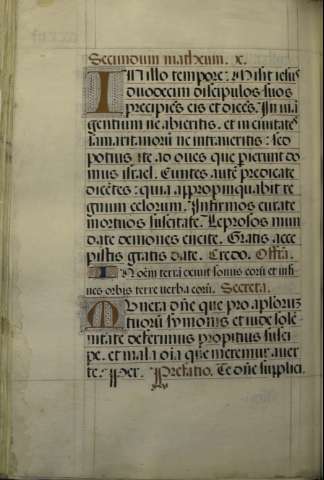 Secundum matheum. x.
IN illo tempore: Misit iesus
duodecim discipulos suos
precipiēs eis et dicēs. In uiā
gentium ne abieritis. et in ciuitates
samaritanorū ne intraueritis: sed
potius ite ad oues que pierunt do
mus israel. Euntes autē predicate
dicētes: quia appropinquabit re
gnum celorum. Infirmos curate
mortuos suscitate. Leprosos mun
date demones eiicite. Gratis acce
pistis gratis date. Credo. Offrā.
IN oēm terrā exiuit sonus eorū et in fi
nes orbis terre uerba eorū. Secreta.
MUnera dñe que pro apłorum
tuorū symonis et iude solē
nitate deferimus propitius susci
pe. et mala oīa que meremur auer
te. Per. Prefatio. Te dñe supplici.